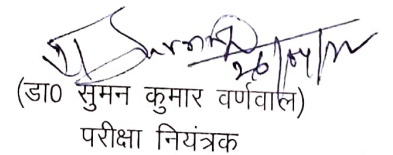 26/04/22
(डा0 सुमन कुमार वर्णवाल)
परीक्षा नियंत्रक